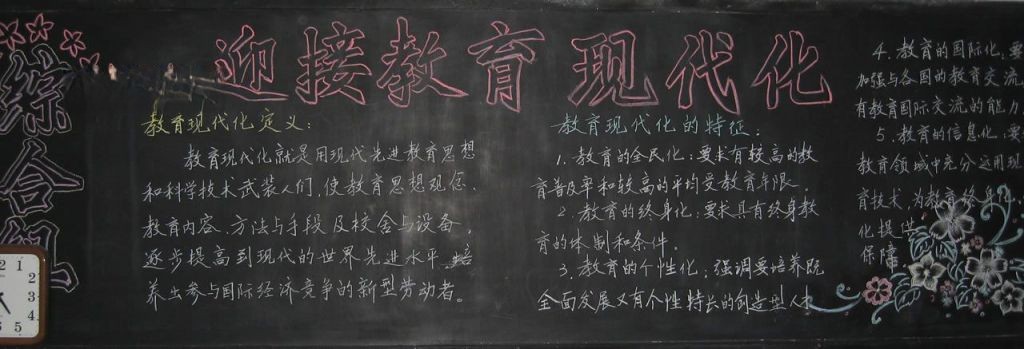 综合组
迎接教育现代化
教育现代化定义：
教育现代化就是用现代先进教育思想
和科学技术武装人们，使教育思想观念、
教育内容、方法与手段及校舍与设备，
逐步提高到现代的世界先进水平，培
养出参与国际经济竞争的新型劳动者。
教育现代化的特征：
1、教育的全民化：要求有较高的教
育普及率和较高的平均受教育年限。
2、教育的终身化：要求具有终身教
育的体制和条件。
3、教育的个性化：强调要培养既
全面发展又有个性特长的创造型人才
4、教育的国际化，要
加强与各国的教育交流
有教育国际交流的能力
5、教育的信息化：要
教育领域中充分运用现
育技术，为教育终身化、
化提供
保障
2 1
2
3
4
6 5